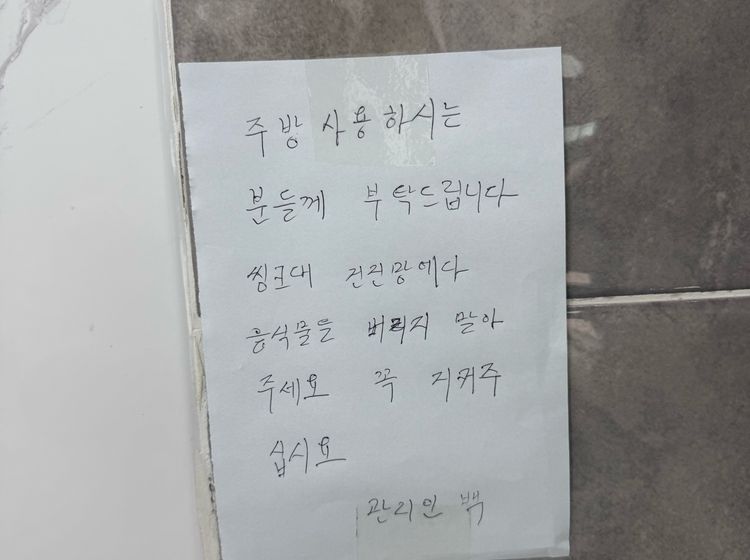 주방 사용하시는
분들께 부탁드립니다
씽크대 건진망에다
음식물을 버리지 말아
주세요 꼭 지켜주
십시요
관리인 백